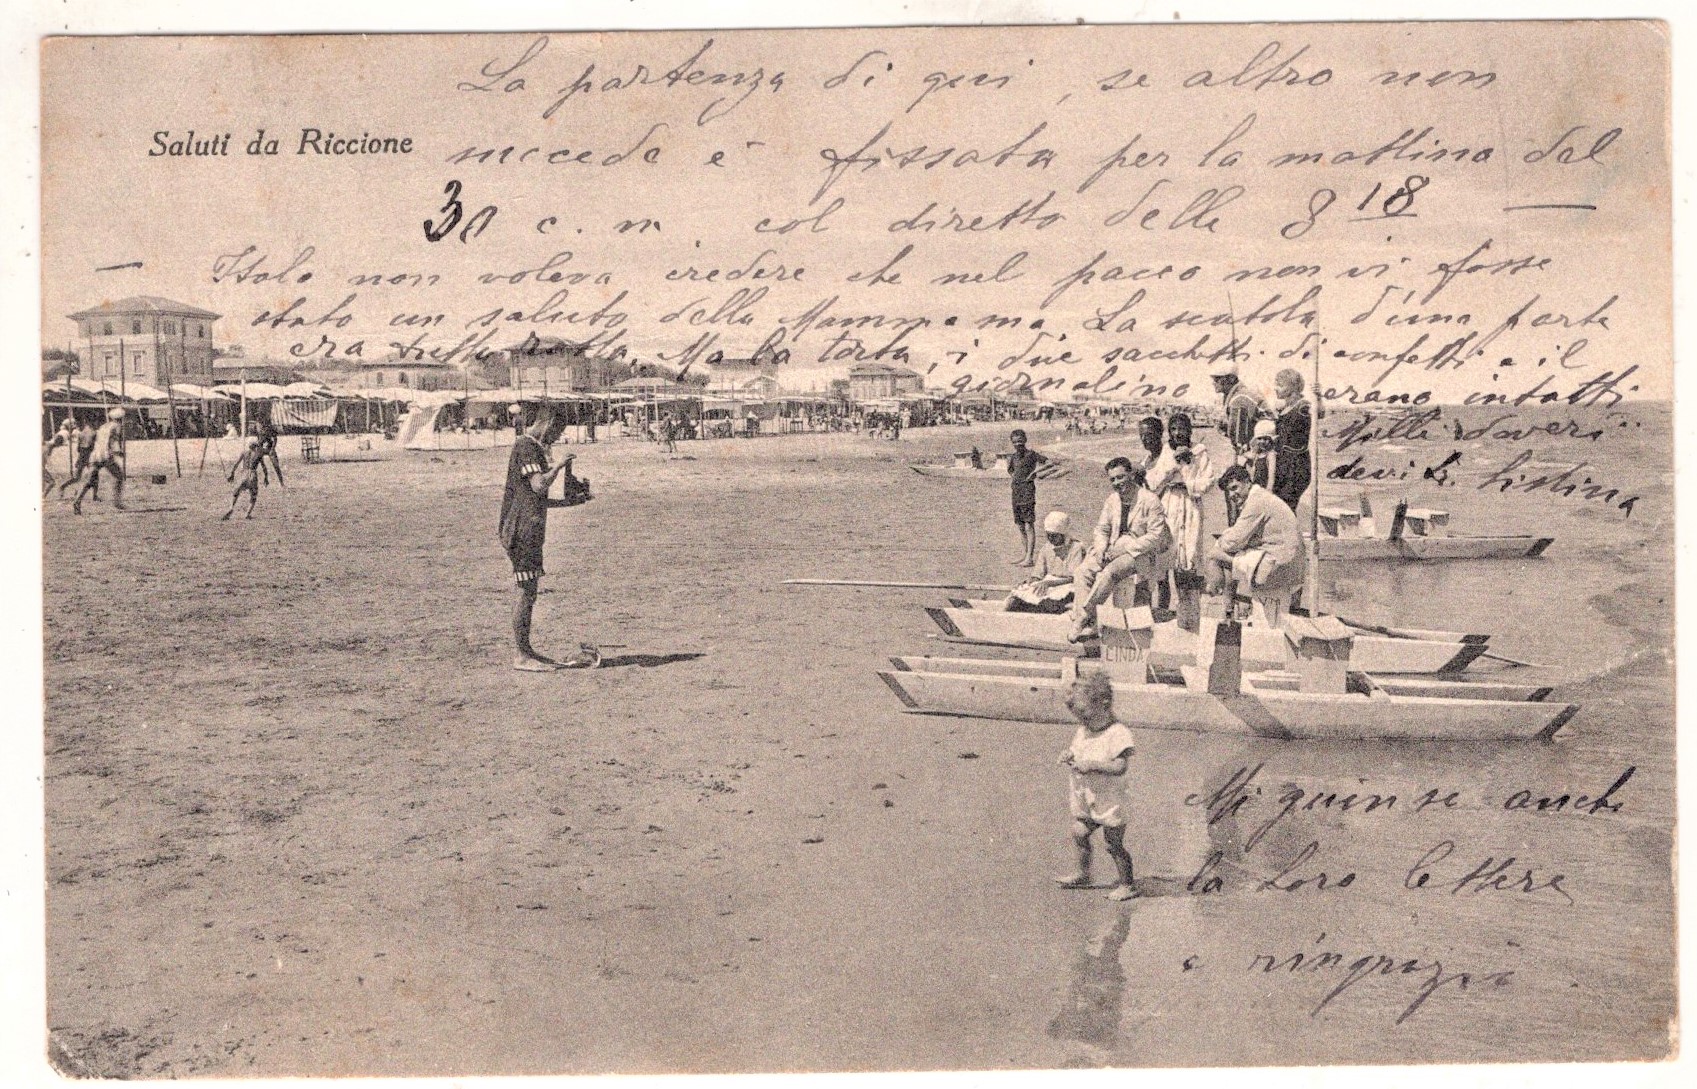 Saluti da Riccione
La partenza di qui, se altro non
succede è fissata per la mattina del
30 c. m. col diretto delle 8 18 —
— Italo non voleva credere che nel pacco non vi fosse
stato un saluto della Mamma ma. La scatola d'una parte
era tutta rotta. Ma la torta, i due sacchetti di confetti e il
giornalino erano intatti
Mille doveri
devi
LINDA
Mi giunse anche
la Loro lettera
e ringrazio